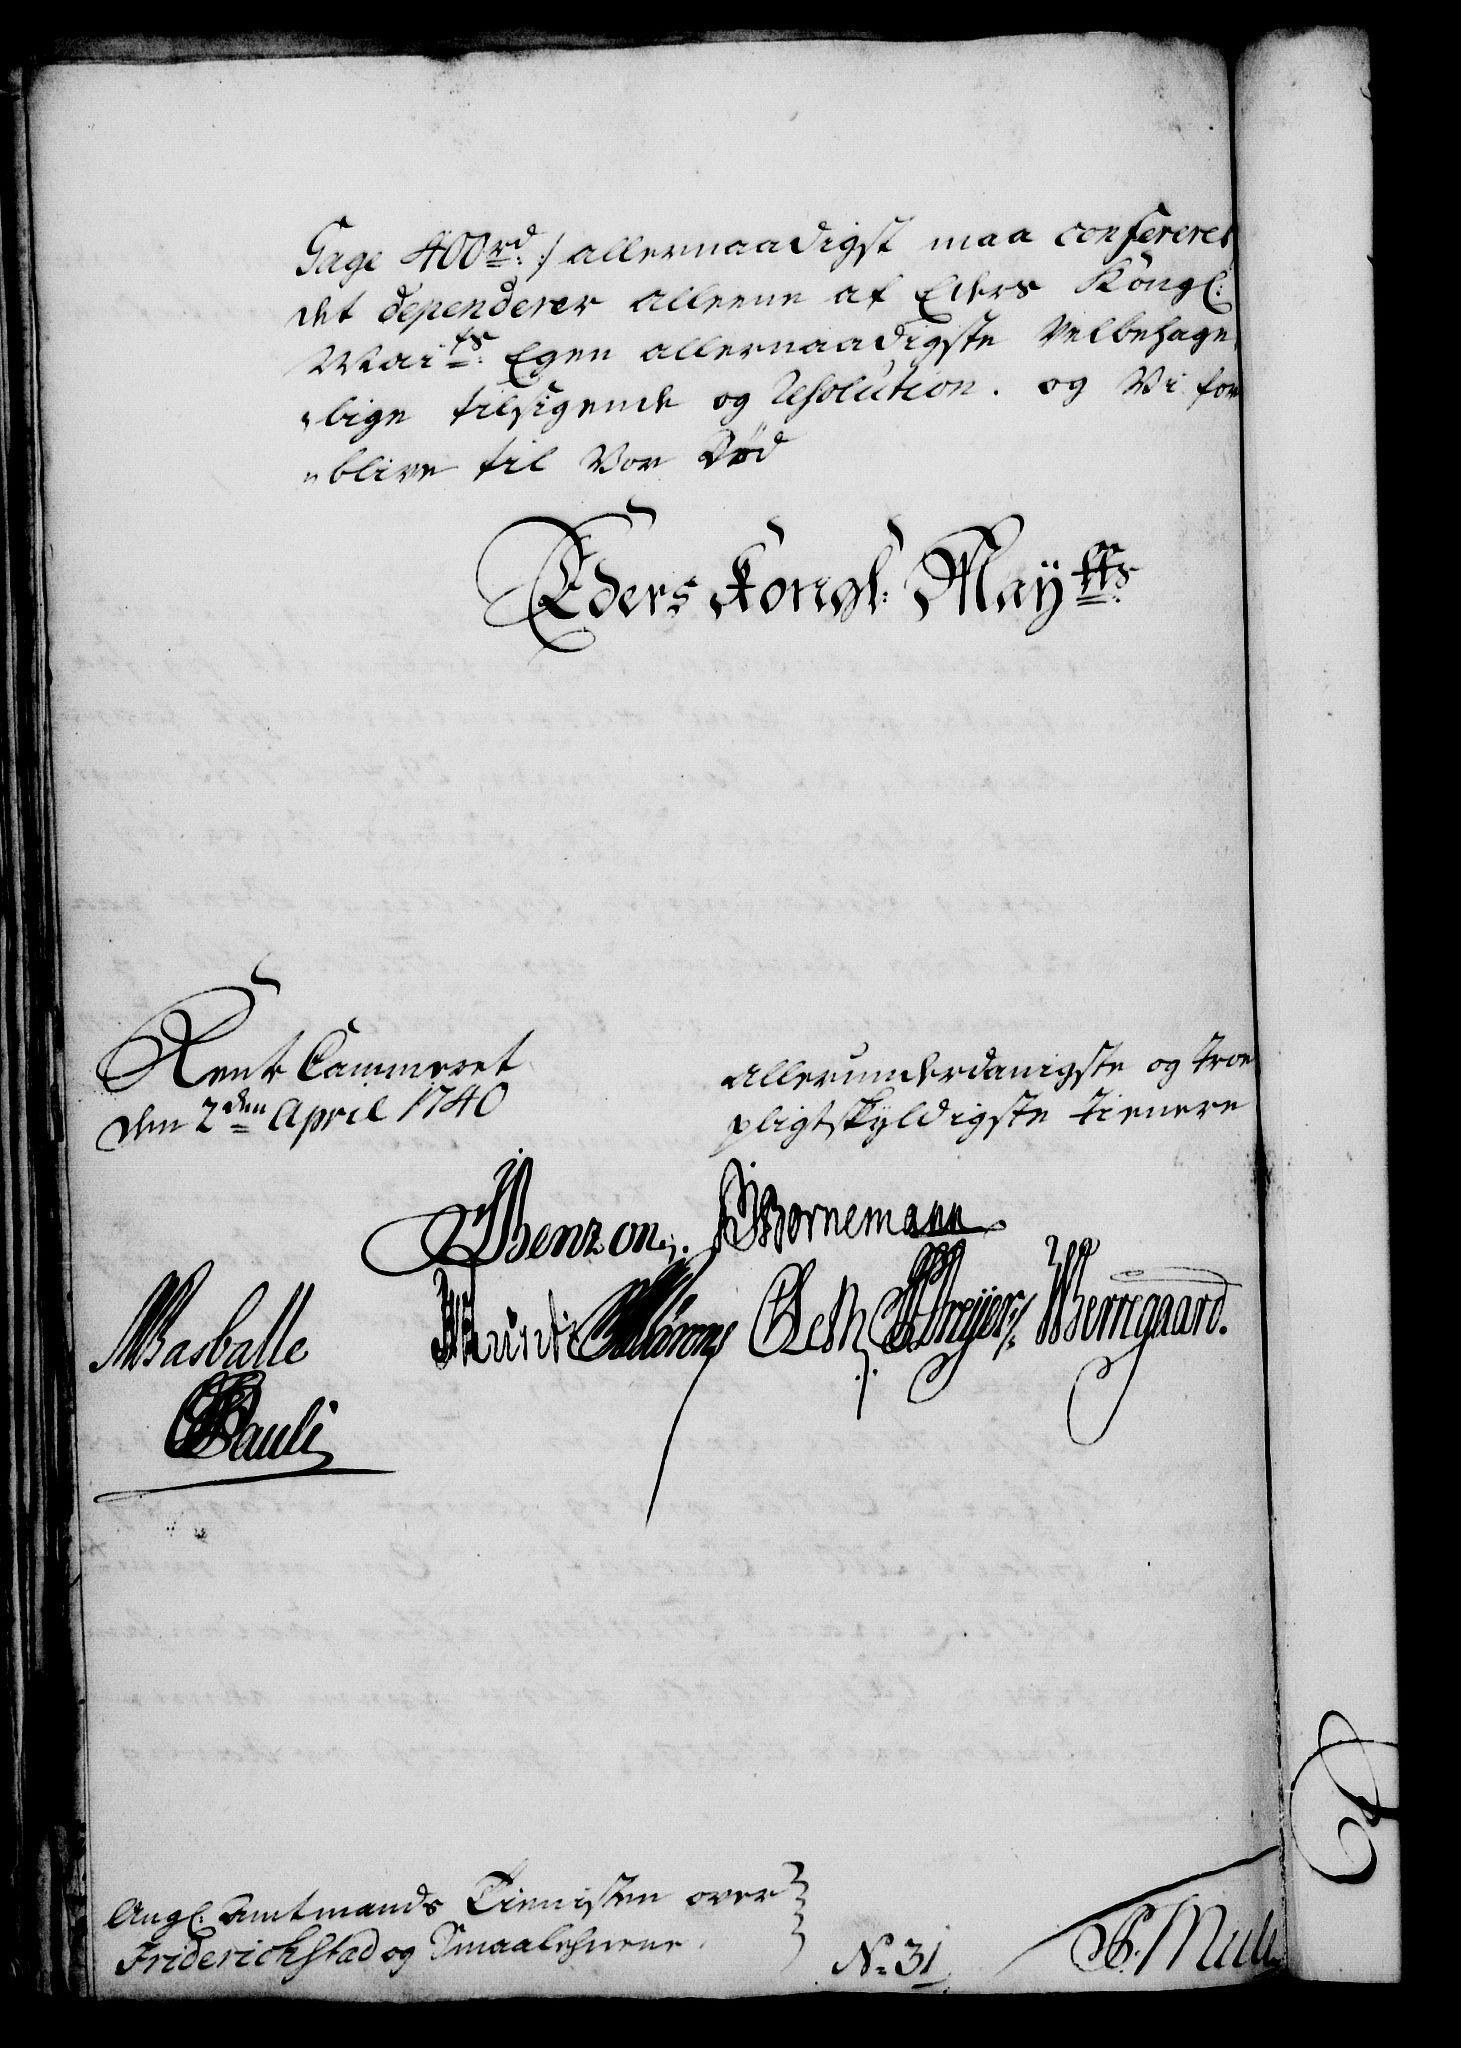 Gage 400 rd:/ allernaadigst maa confereret
det dependerer alleene af Eders Kongl:
Maits: Egen allernaadigste Velbehage,
„lige tilsigende og Resolution. og Vi for
„blive til Vor Død
Eders Kongl: Maytts:
Rente Cammeret
den 2den April 1740
allerunderdanigste og Troe
pligtskyldigste Tienere
JBenzon. Bornemann
Basballe
Oeth Dreyer Wernegaard.
Pauli
Angl: Amtmands Tienisten over
Friderichstad og Smaalehnene.
No 31
Mull